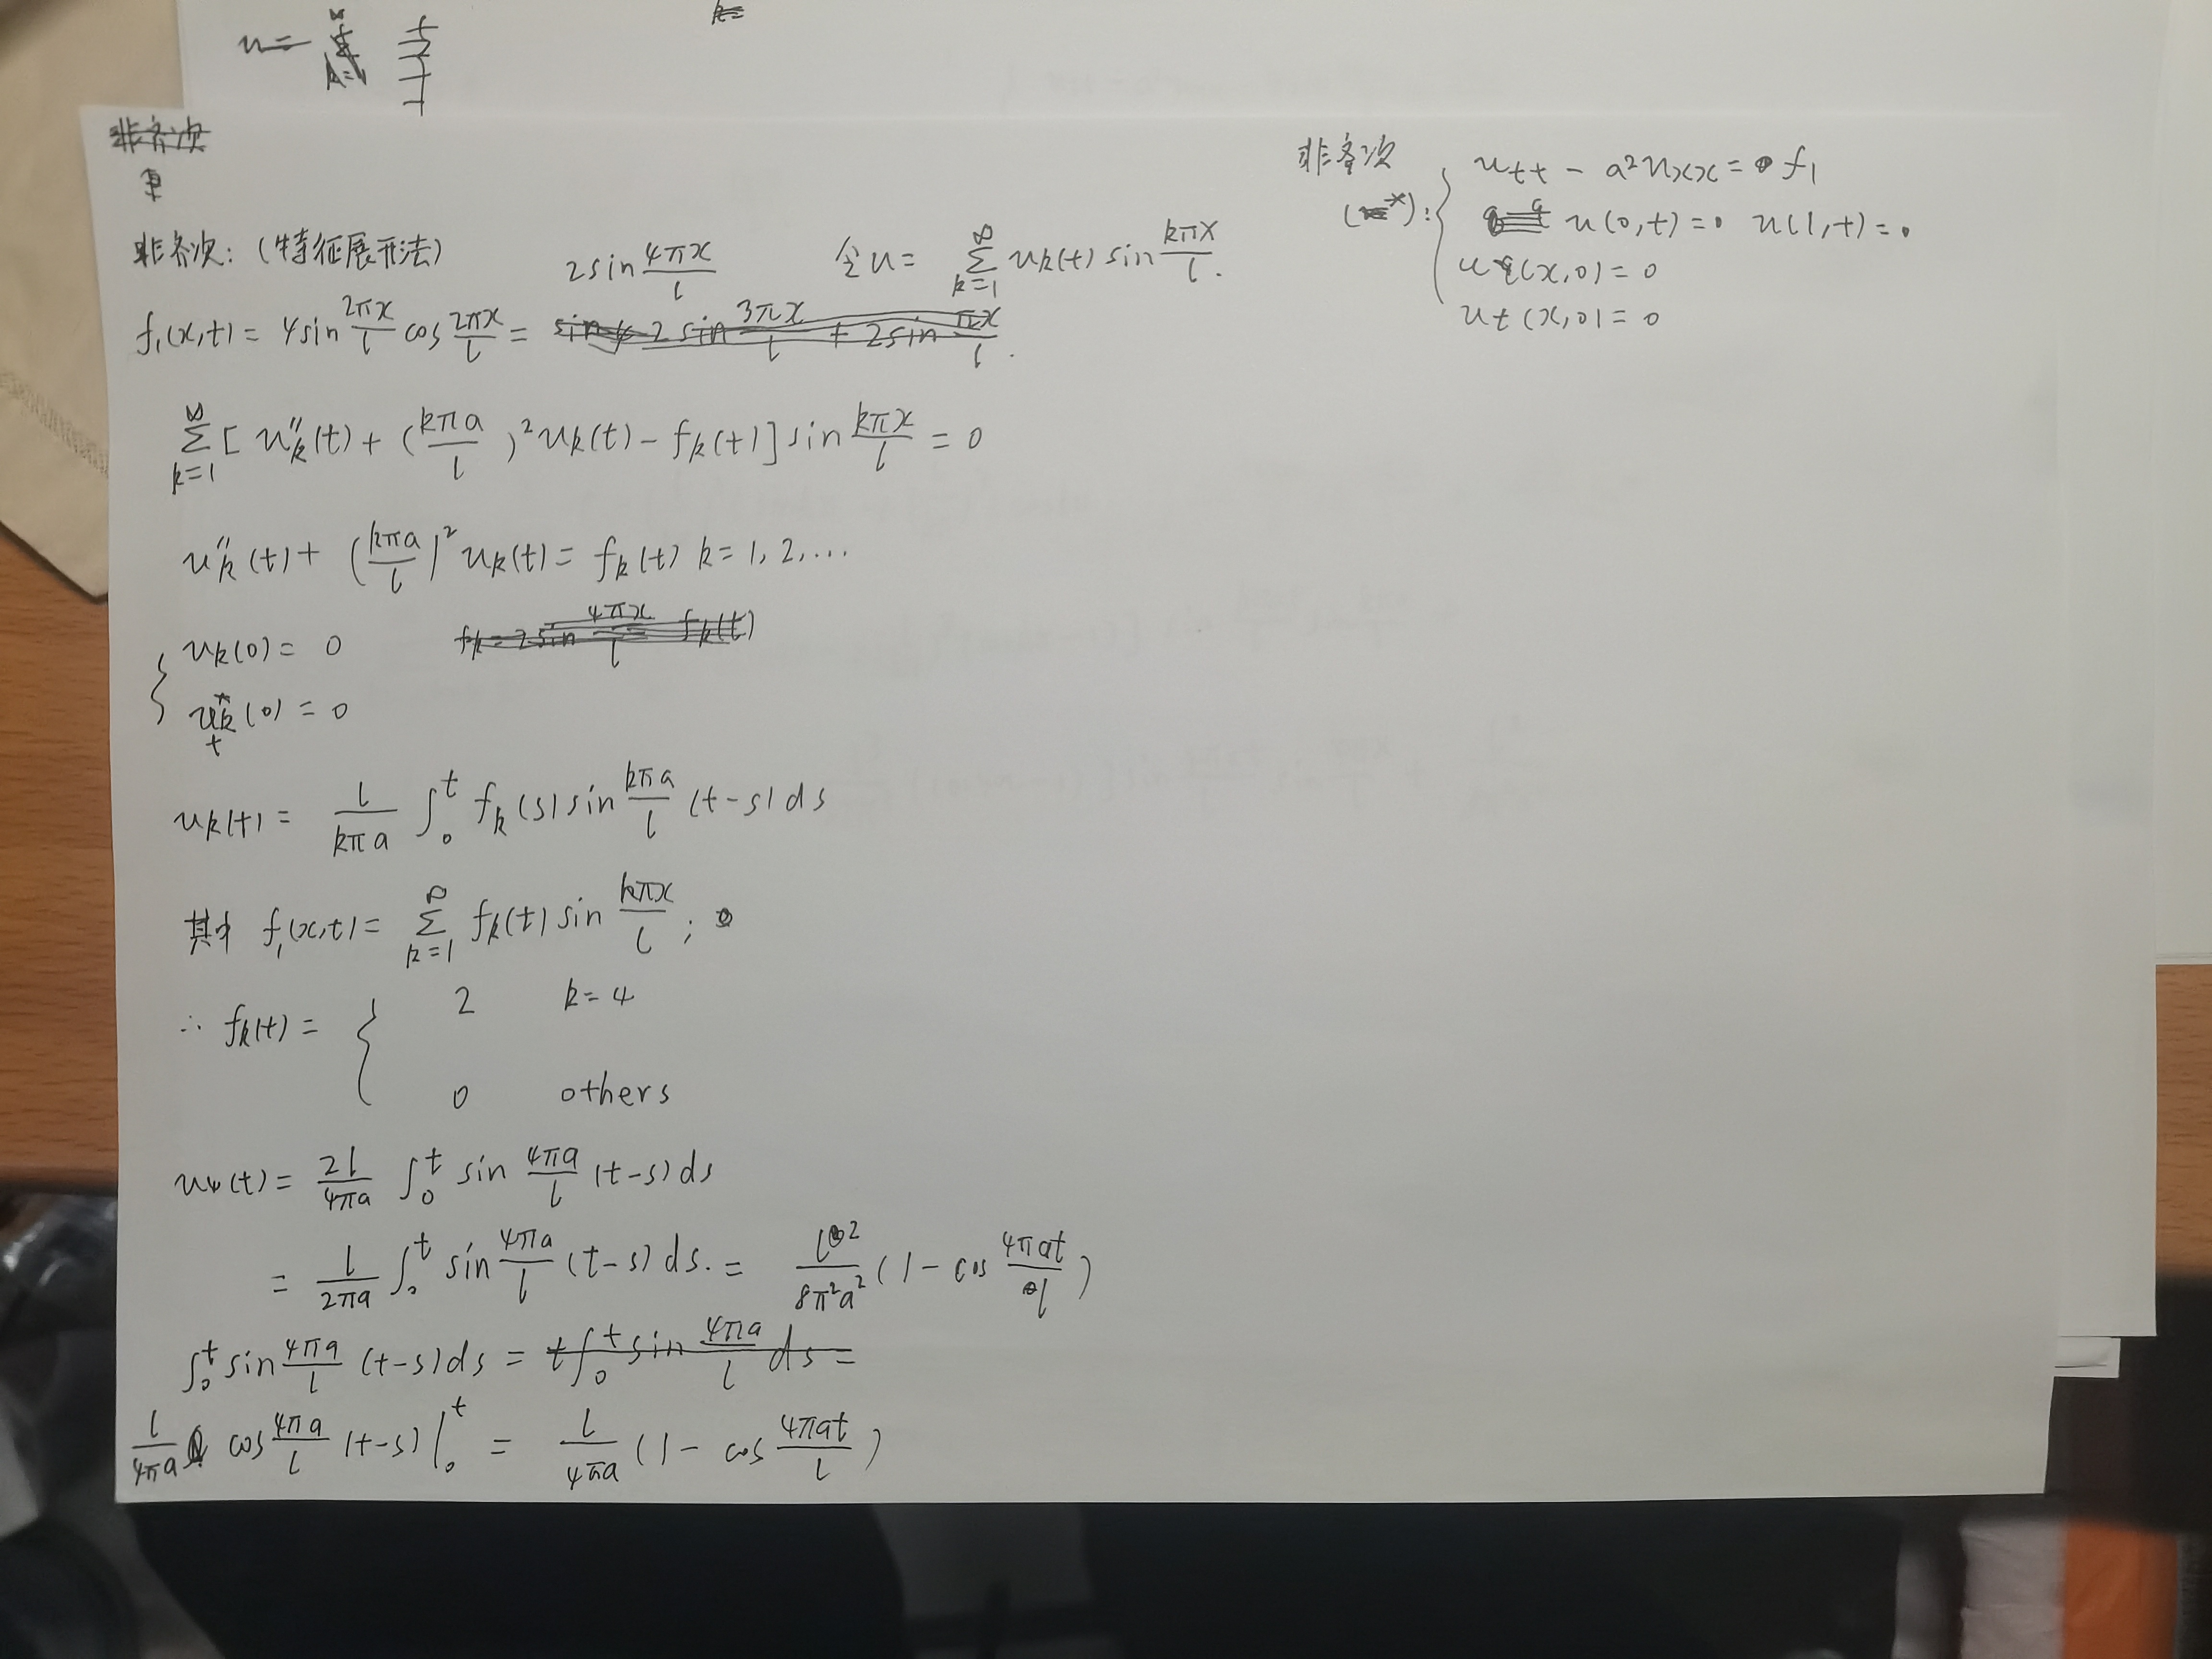 u=
k=
非齐次
非齐次:(特征展开法)
2sin 4πx/l
令u= ∑_{k=1}^{∞} u_k(t) sin kπx/l.
f₁(x,t)= 4sin 2πx/l cos 2πx/l = sin 2 sin 3πx/l + 2sin πx/l.
非齐次
(*): { u_tt - a²u_xx = f₁
u(0,t)=0 u(l,t)=0
u(x,0)=0
u_t(x,0)=0
∑_{k=1}^{∞} [ u_k''(t)+ (kπa/l)² u_k(t) - f_k(t) ] sin kπx/l = 0
u_k''(t)+ (kπa/l)² u_k(t) = f_k(t) k=1,2,...
{ u_k(0)= 0 f_k = 2sin 4πx/l f_k(t)
u_kt(0) = 0
u_k(t) = l/kπa ∫_0^t f_k(s) sin kπa/l (t-s) ds
其中 f₁(x,t)= ∑_{k=1}^{∞} f_k(t) sin kπx/l ;
∴ f_k(t) = { 2 k=4
0 others
u₄(t) = 2l/4πa ∫_0^t sin 4πa/l (t-s) ds
= l/2πa ∫_0^t sin 4πa/l (t-s) ds. = l²/8π²a² (1- cos 4πat/l)
∫_0^t sin 4πa/l (t-s) ds = t∫_0^t sin 4πa/l ds =
l/4πa cos 4πa/l (t-s) |_0^t = l/4πa (1- cos 4πat/l)